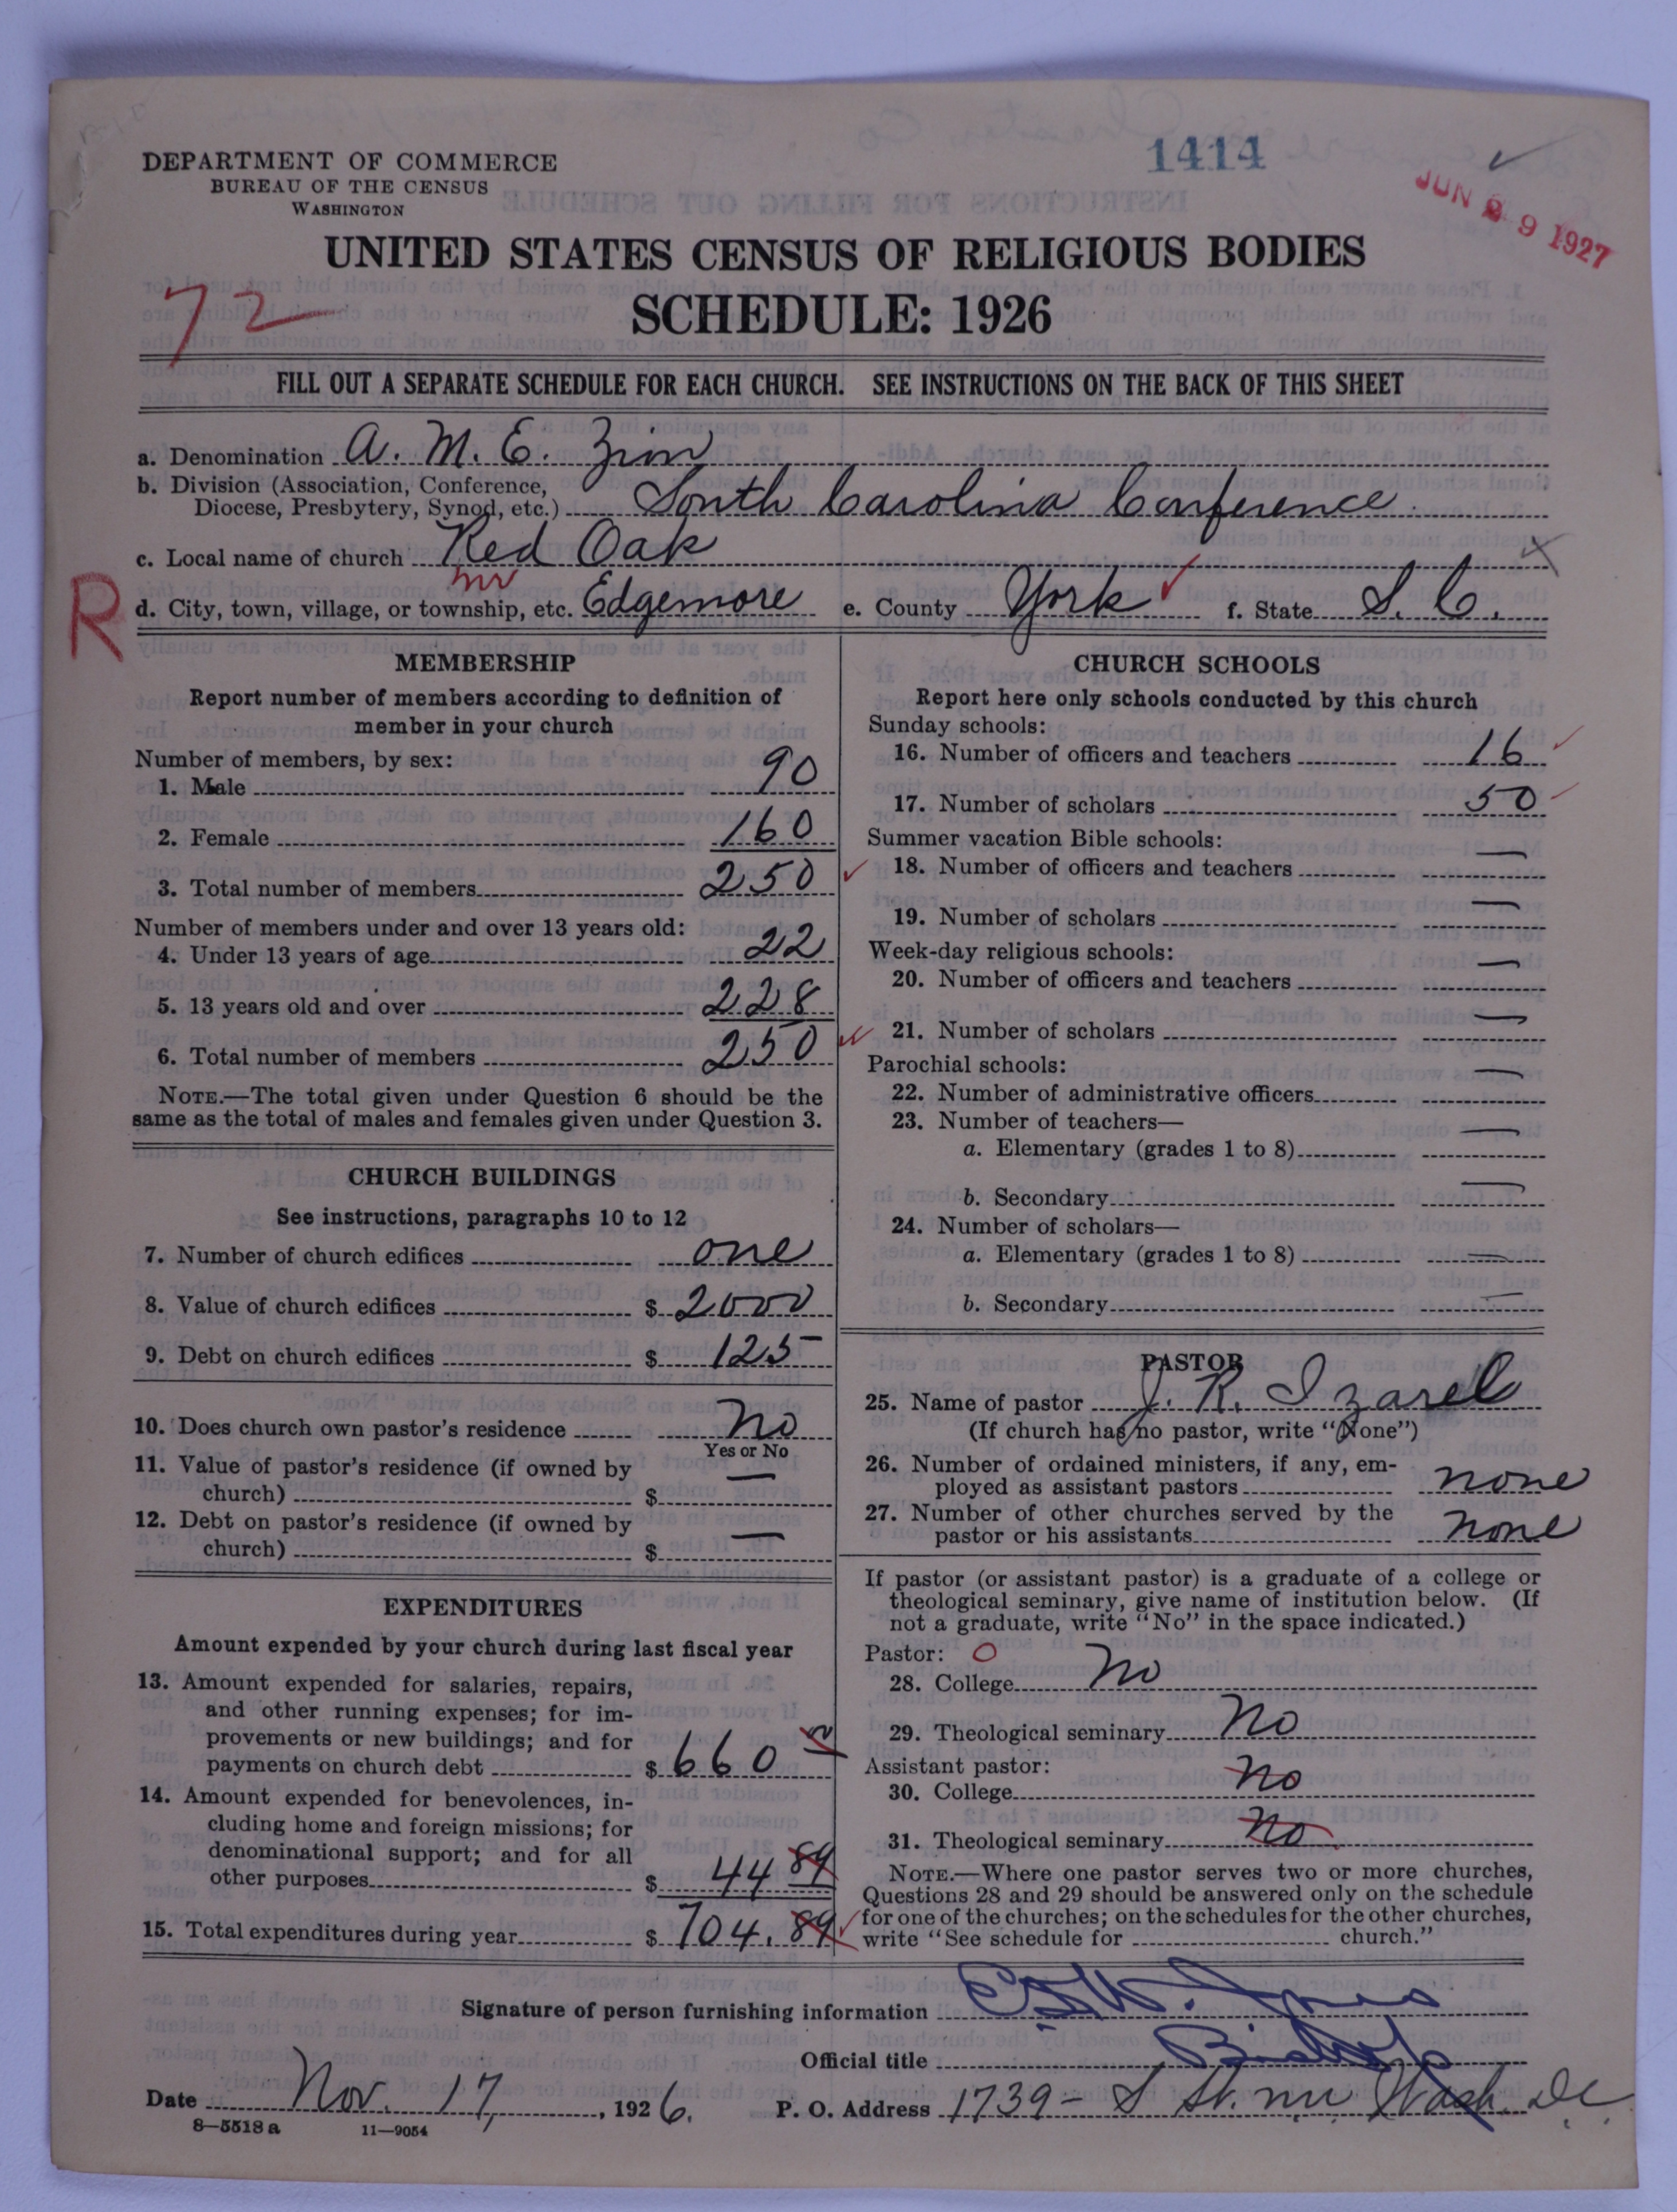 1414
JUN 29 1927
DEPARTMENT OF COMMERCE
BUREAU OF THE CENSUS
WASHINGTON
UNITED STATES CENSUS OF RELIGIOUS BODIES
SCHEDULE: 1926
72
FILL OUT A SEPARATE SCHEDULE FOR EACH CHURCH. SEE INSTRUCTIONS ON THE BACK OF THIS SHEET
a. Denomination A. M. E. Zion
b. Division (Association, Conference,
Diocese, Presbytery, Synod, etc.) South Carolina Conference
c. Local name of church Red Oak
R
d. City, town, village, or township, etc. Edgemore e. County York f. State S. C.
MEMBERSHIP
Report number of members according to definition of
member in your church
Number of members, by sex:
1. Male 90
2. Female 160
3. Total number of members 250
Number of members under and over 13 years old:
4. Under 13 years of age 22
5. 13 years old and over 228
6. Total number of members 250
NOTE.—The total given under Question 6 should be the
same as the total of males and females given under Question 3.
CHURCH BUILDINGS
See instructions, paragraphs 10 to 12
7. Number of church edifices one
8. Value of church edifices $ 2000
9. Debt on church edifices $ 125
10. Does church own pastor's residence No
Yes or No
11. Value of pastor's residence (if owned by
church) $ —
12. Debt on pastor's residence (if owned by
church) $ —
EXPENDITURES
Amount expended by your church during last fiscal year
13. Amount expended for salaries, repairs,
and other running expenses; for im-
provements or new buildings; and for
payments on church debt $ 660
14. Amount expended for benevolences, in-
cluding home and foreign missions; for
denominational support; and for all
other purposes $ 44 89
15. Total expenditures during year $ 704.89
CHURCH SCHOOLS
Report here only schools conducted by this church
Sunday schools:
16. Number of officers and teachers 16
17. Number of scholars 50
Summer vacation Bible schools:
18. Number of officers and teachers —
19. Number of scholars —
Week-day religious schools:
20. Number of officers and teachers —
21. Number of scholars —
Parochial schools:
22. Number of administrative officers —
23. Number of teachers—
a. Elementary (grades 1 to 8) —
b. Secondary —
24. Number of scholars—
a. Elementary (grades 1 to 8) —
b. Secondary —
PASTOR
25. Name of pastor J. R. Izarel
(If church has no pastor, write "None")
26. Number of ordained ministers, if any, em-
ployed as assistant pastors none
27. Number of other churches served by the
pastor or his assistants none
If pastor (or assistant pastor) is a graduate of a college or
theological seminary, give name of institution below. (If
not a graduate, write "No" in the space indicated.)
Pastor: O
28. College No
29. Theological seminary No
Assistant pastor:
30. College No
31. Theological seminary No
NOTE.—Where one pastor serves two or more churches,
Questions 28 and 29 should be answered only on the schedule
for one of the churches; on the schedules for the other churches,
write "See schedule for church."
Signature of person furnishing information Jones
Official title Bishop
Date Nov. 17, 1926. P. O. Address 1739 - S St. nw Wash. DC.
8—5518 a 11—9054